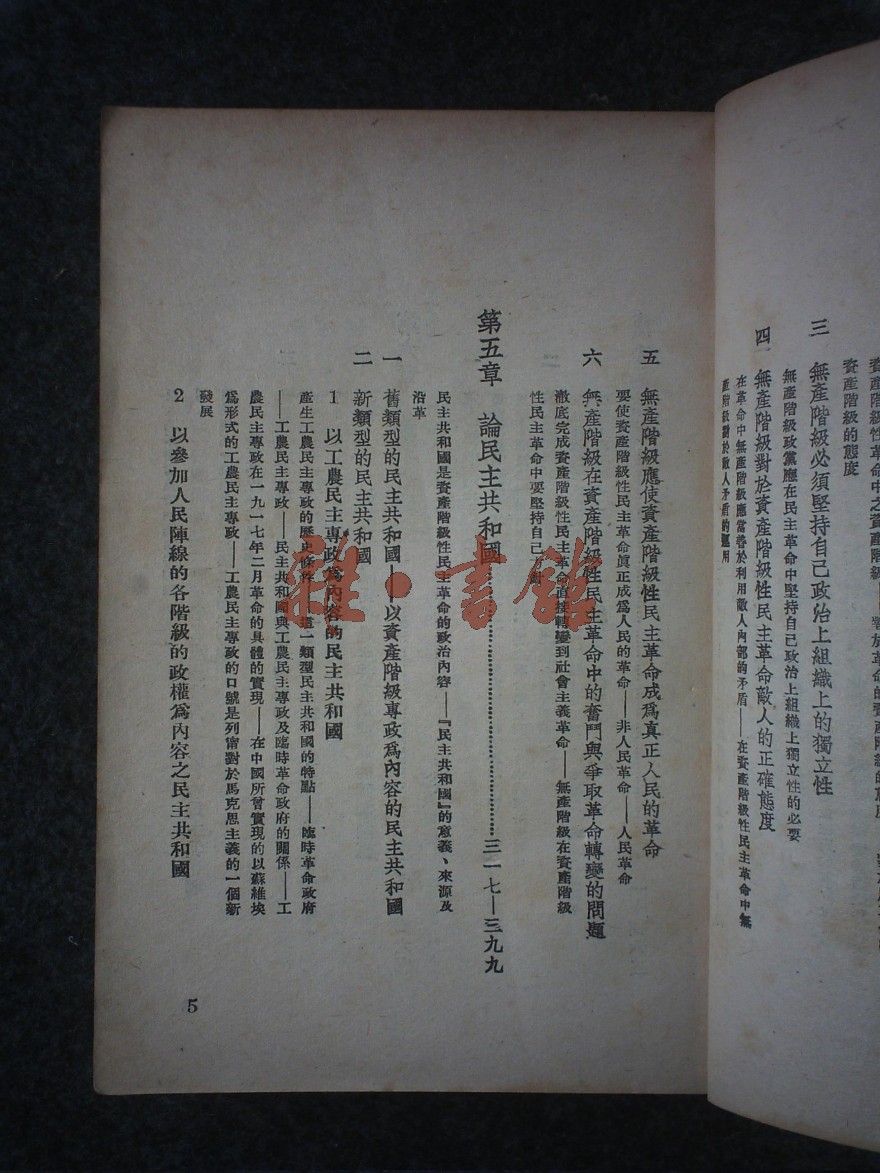 資產階級的態度
三 無產階級必須堅持自己政治上組織上的獨立性
無產階級政黨應在民主革命中堅持自己政治上組織上獨立性的必要
四 無產階級對於資產階級性民主革命敵人的正確態度
在革命中無產階級應當善於利用敵人內部的矛盾——在資產階級性民主革命中無
產階級對於敵人矛盾的運用
五 無產階級應使資產階級性民主革命成為真正人民的革命
要使資產階級性民主革命眞正成爲人民的革命——非人民革命——人民革命
六 無產階級在資產階級性民主革命中的奮鬥與爭取革命轉變的問題
澈底完成資產階級性民主革命直接轉變到社會主義革命——無產階級在資產階級
性民主革命中要堅持自己
第五章 論民主共和國……三一七—三九九
民主共和國是資產階級性民主革命的政治內容——『民主共和國』的意義、來源及
沿革
一 舊類型的民主共和國——以資產階級專政爲內容的民主共和國
二 新類型的民主共和國
1 以工農民主專政爲內容的民主共和國
產生工農民主專政的歷史條件——這一類型民主共和國的特點——臨時革命政府
——工農民主專政——民主共和國與工農民主專政及臨時革命政府的關係——工
農民主專政在一九一七年二月革命的具體的實現——在中國所曾實現的以蘇維埃
爲形式的工農民主專政——工農民主專政的口號是列甯對於馬克思主義的一個新
發展
2 以參加人民陣線的各階級的政權爲內容之民主共和國
5
雅·書館